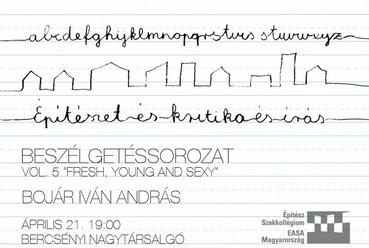 abcdefghijklmnopqrstuvwxyz
Építészet és kritika és írás
BESZÉLGETÉSSOROZAT
VOL. 5 "FRESH, YOUNG AND SEXY"
BOJÁR IVÁN ANDRÁS
ÁPRILIS 21. 19:00
BERCSÉNYI NAGYTÁRSALGÓ
Építész
Szakkollégium
EASA
Magyarország